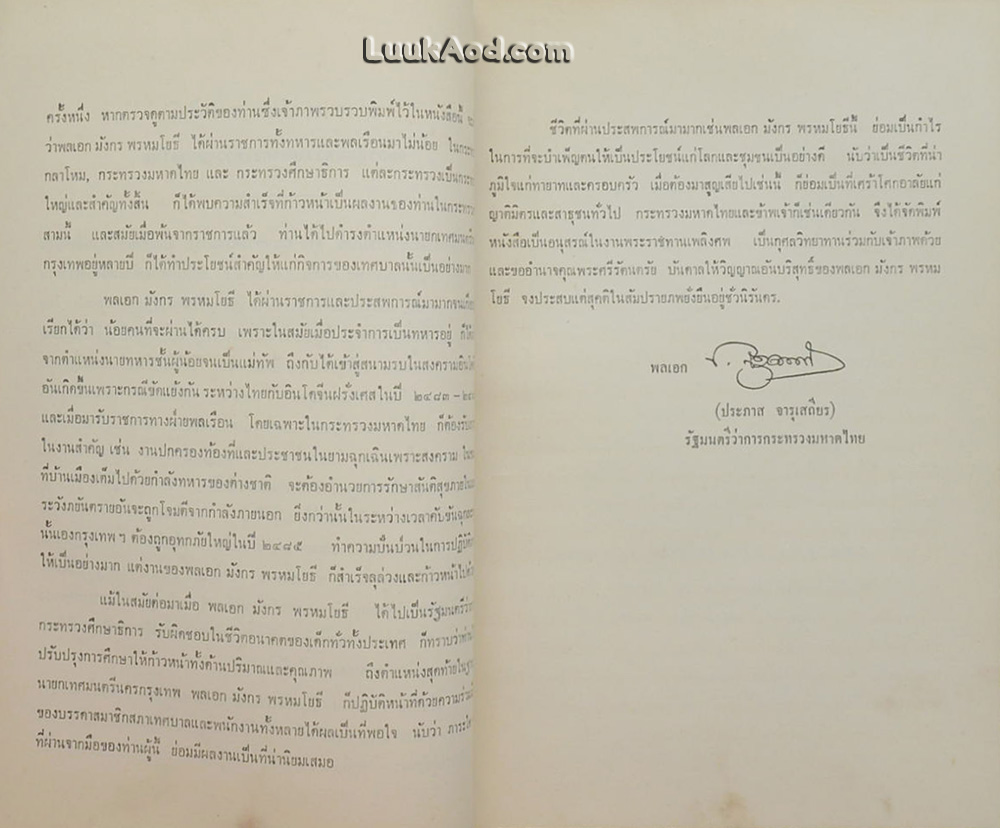 LuukAod.com
ครั้งหนึ่ง หากตรวจดูตามประวัติของท่านซึ่งเจ้าภาพรวบรวมพิมพ์ไว้ในหนังสือนี้
ว่าพลเอก มังกร พรหมโยธี ได้ผ่านราชการทั้งทหารและพลเรือนมาไม่น้อย
กลาโหม, กระทรวงมหาดไทย และ กระทรวงศึกษาธิการ แต่ละกระทรวงเป็น
ใหญ่และสำคัญทั้งสิ้น ก็ได้พบความสำเร็จที่ก้าวหน้าเป็นผลงานของท่านใน
สามนี้ และสมัยเมื่อพ้นจากราชการแล้ว ท่านได้ไปดำรงตำแหน่งนายกเทศมนตรี
กรุงเทพอยู่หลายปี ก็ได้ทำประโยชน์สำคัญให้แก่กิจการของเทศบาลนั้นเป็นอย่างมาก
พลเอก มังกร พรหมโยธี ได้ผ่านราชการและประสพการณ์มามากจน
เรียกได้ว่า น้อยคนที่จะผ่านได้ครบ เพราะในสมัยเมื่อประจำการเป็นทหารอยู่
จากตำแหน่งนายทหารชั้นผู้น้อยจนเป็นแม่ทัพ ถึงกับได้เข้าสู่สนามรบในสงคราม
อันเกิดขึ้นเพราะกรณีขัดแย้งกัน ระหว่างไทยกับอินโดจีนฝรั่งเศสในปี ๒๔๘๓ –
และเมื่อมารับราชการทางฝ่ายพลเรือน โดยเฉพาะในกระทรวงมหาดไทย ก็ต้อง
ในงานสำคัญ เช่น งานปกครองท้องที่และประชาชนในยามฉุกเฉินเพราะสงคราม
ที่บ้านเมืองเต็มไปด้วยกำลังทหารของต่างชาติ จะต้องอำนวยการรักษาสันติสุขภายใน
ระวังภยันตรายอันจะถูกโจมตีจากกำลังภายนอก ยิ่งกว่านั้นในระหว่างเวลาคับขัน
นั้นเองกรุงเทพ ฯ ต้องถูกอุทกภัยใหญ่ในปี ๒๔๘๕ ทำความปั่นป่วนในการ
ให้เป็นอย่างมาก แต่งานของพลเอก มังกร พรหมโยธี ก็สำเร็จลุล่วงและก้าวหน้าไป
แม้ในสมัยต่อมาเมื่อ พลเอก มังกร พรหมโยธี ได้ไปเป็นรัฐมนตรี
กระทรวงศึกษาธิการ รับผิดชอบในชีวิตอนาคตของเด็กทั่วทั้งประเทศ ก็ทราบว่า
ปรับปรุงการศึกษาให้ก้าวหน้าทั้งด้านปริมาณและคุณภาพ ถึงตำแหน่งสุดท้าย
นายกเทศมนตรีนครกรุงเทพ พลเอก มังกร พรหมโยธี ก็ปฏิบัติหน้าที่ด้วยความ
ของบรรดาสมาชิกสภาเทศบาลและพนักงานทั้งหลายได้ผลเป็นที่พอใจ นับว่า
ที่ผ่านจากมือของท่านผู้นี้ ย่อมมีผลงานเป็นที่น่านิยมเสมอ
ชีวิตที่ผ่านประสพการณ์มามากเช่นพลเอก มังกร พรหมโยธีนี้ ย่อมเป็นกำไร
ในการที่จะบำเพ็ญตนให้เป็นประโยชน์แก่โลกและชุมชนเป็นอย่างดี นับว่าเป็นชีวิตที่น่า
ภูมิใจแก่ทายาทและครอบครัว เมื่อต้องมาสูญเสียไปเช่นนี้ ก็ย่อมเป็นที่เศร้าโศกอาลัยแก่
ญาติมิตรและสาธุชนทั่วไป กระทรวงมหาดไทยและข้าพเจ้าก็เช่นเดียวกัน จึงได้จัดพิมพ์
หนังสือเป็นอนุสรณ์ในงานพระราชทานเพลิงศพ เป็นกุศลวิทยาทานร่วมกับเจ้าภาพด้วย
และขออำนาจคุณพระศรีรัตนตรัย บันดาลให้วิญญาณอันบริสุทธิ์ของพลเอก มังกร พรหม
โยธี จงประสบแต่สุคติในสัมปรายภพยั่งยืนอยู่ชั่วนิรันดร.
พลเอก
(ประภาส จารุเสถียร)
รัฐมนตรีว่าการกระทรวงมหาดไทย